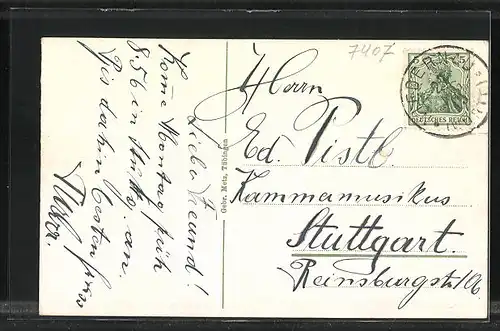 7407
DEUTSCHES REICH
Herrn
Ed. Pistl
Kammermusikus
Stuttgart.
Reinsburgstr 10b
Gebr. Metz, Tübingen
Lieber Freund!
Kome Montag früh
8.56 in Stuttg. an.
Bis dahin besten Gruss